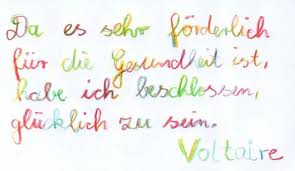 Da es sehr förderlich
für die Gesundheit ist,
habe ich beschlossen,
glücklich zu sein.
Voltaire